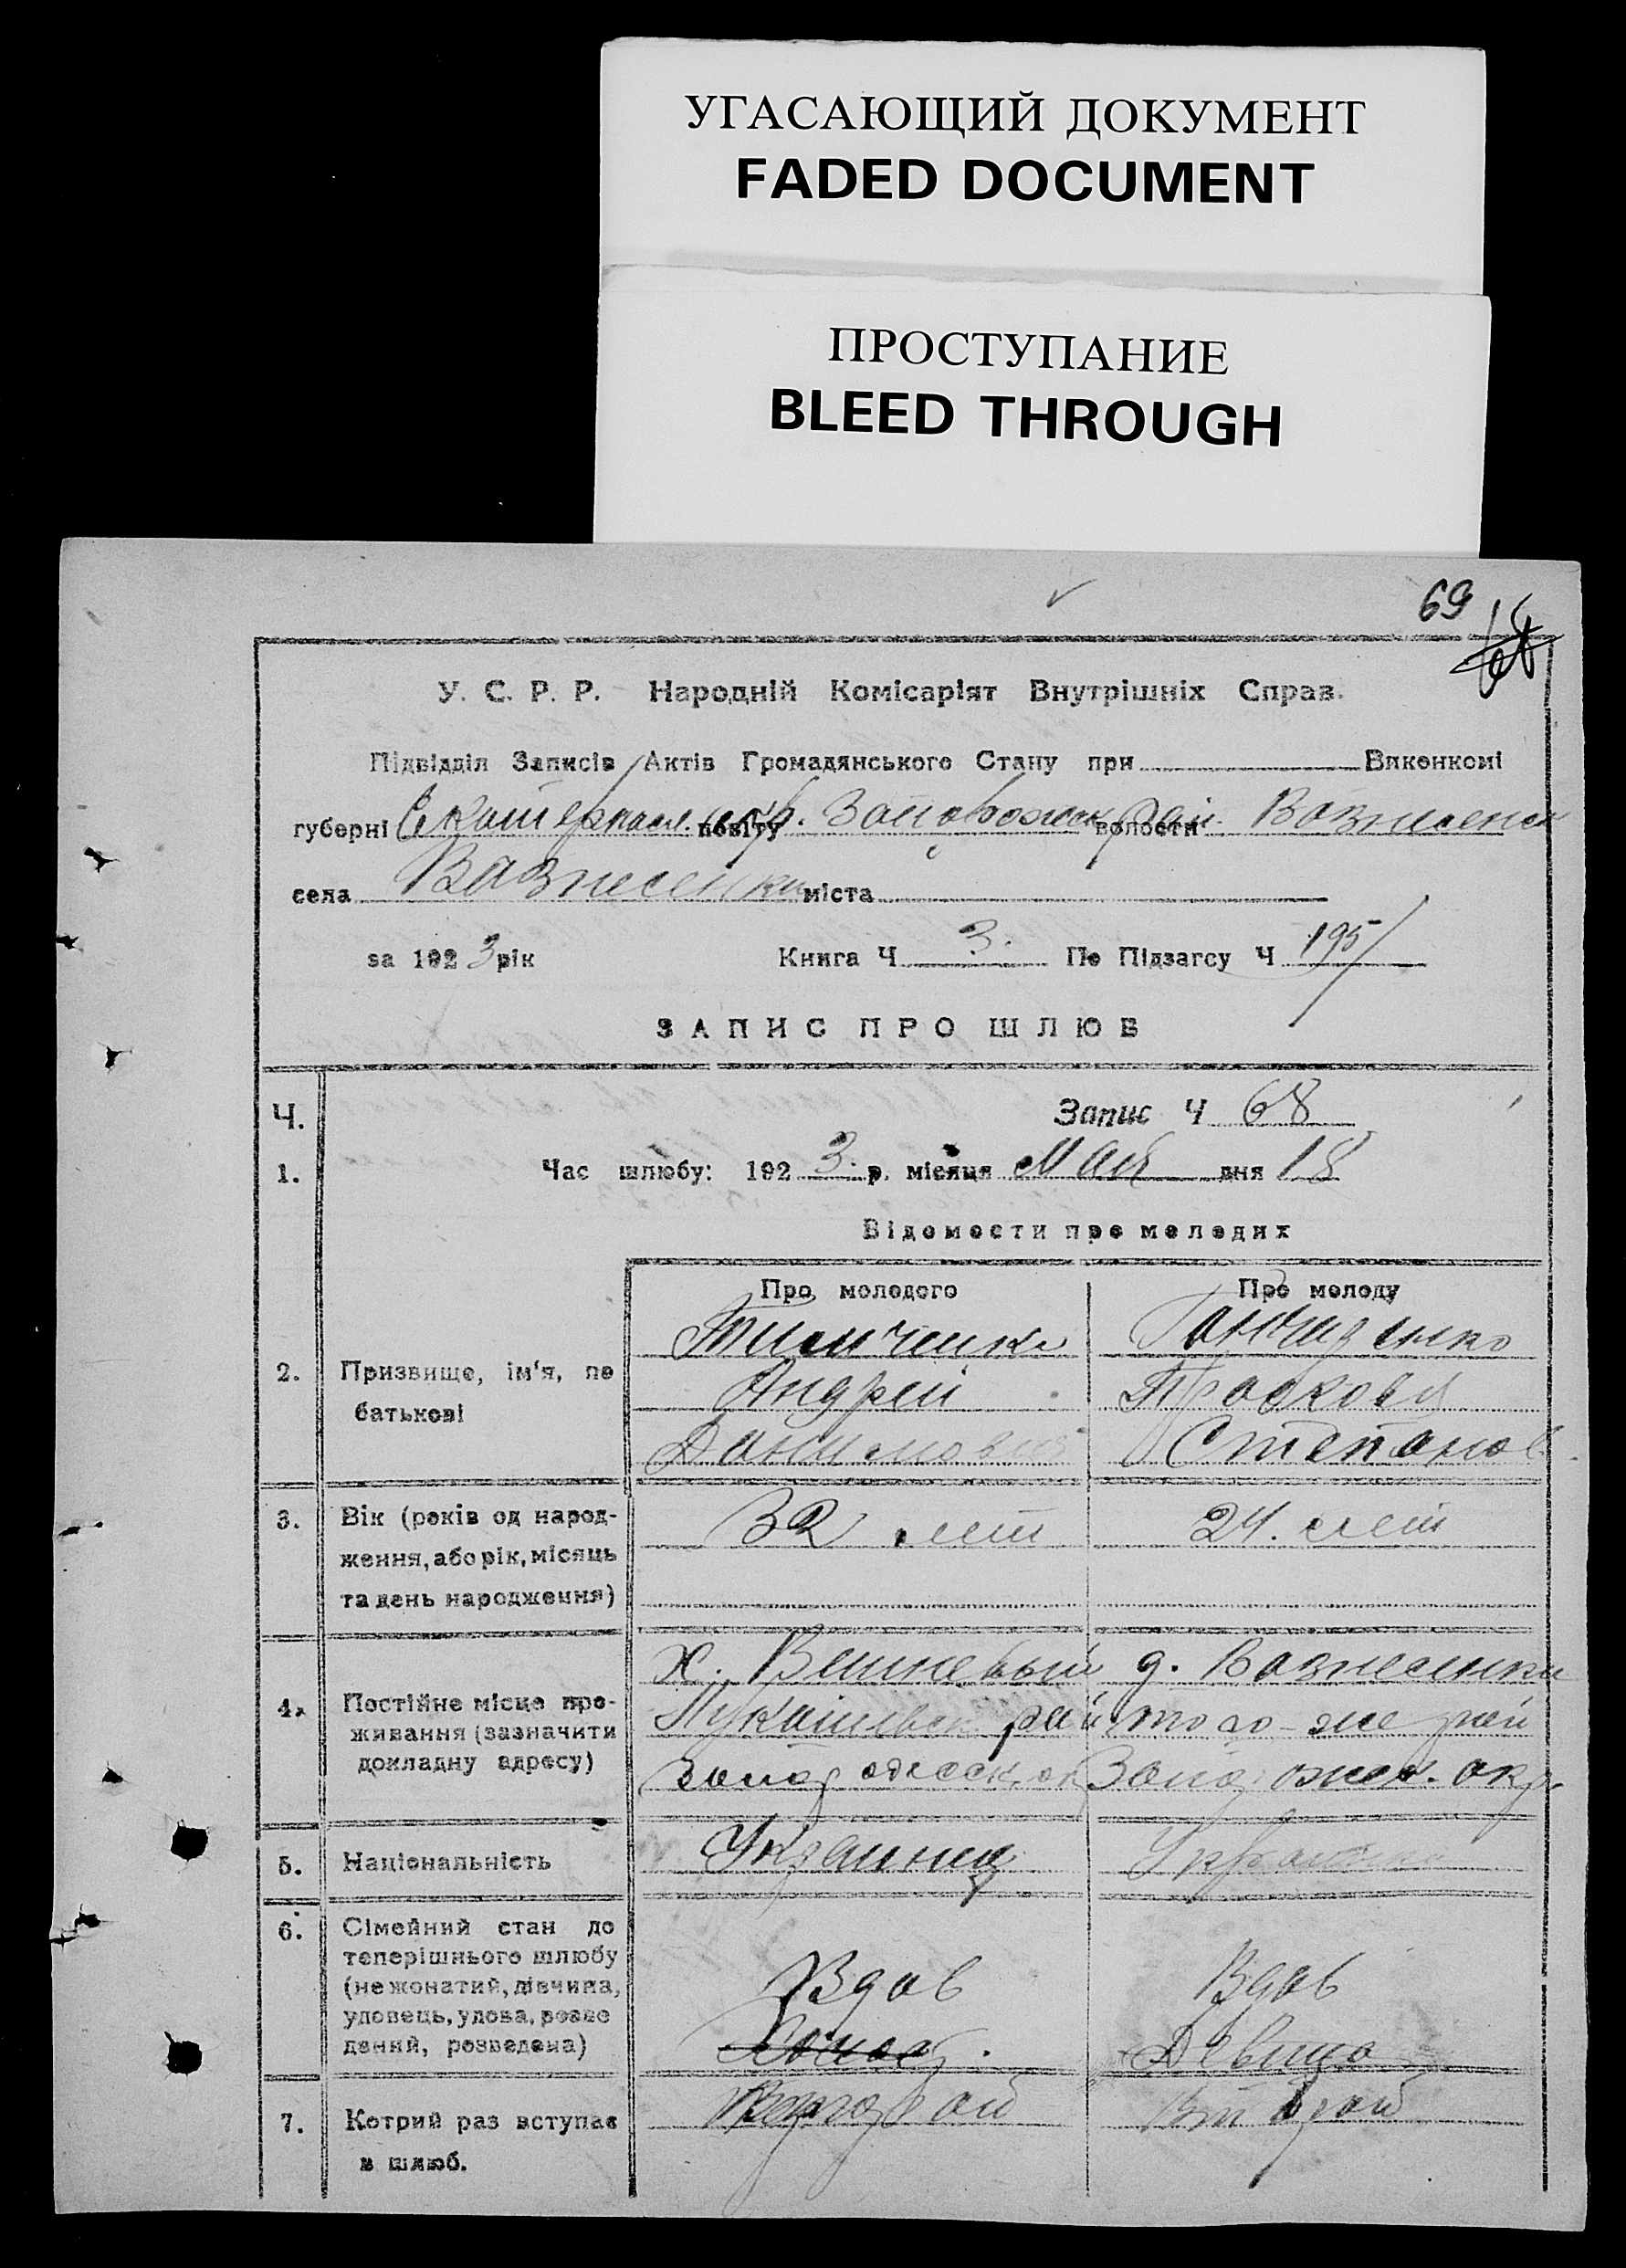 УГАСАЮЩИЙ ДОКУМЕНТ
FADED DOCUMENT
ПРОСТУПАНИЕ
BLEED THROUGH
69
У. С. Р. Р. Народній Комісаріят Внутрішніх Справ.
Підвідділ Записів Актів Громадянського Стану при Виконкомі
губерні Екатериносл. повіту окр. Запорожск волости рай. Вознесенск
села Вазнесенки міста
за 1923 рік Книга Ч 3. По Підзагсу Ч 195
ЗАПИС ПРО ШЛЮБ
Ч. Запис Ч 68
1. Час шлюбу: 1923 р. місяця Мая дня 18
Відомости про молодих
Про молодого Про молоду
2. Призвище, ім'я, по батькові
Андрей Прасковя
Данилович Степанов
3. Вік (років од народ-
ження, або рік, місяць
та день народження)
32 лет 24. лет
4. Постійне місце про-
живання (зазначити
докладну адресу)
Х. д. Вознесенки
рай того-же рай
Запорожск. окр.
5. Національність Украинец Украинка
6. Сімейний стан до
теперішнього шлюбу
(не жонатий, дівчина,
удовець, удова, розве
дений, розведена)
Вдов Вдов
Холост. Девица
7. Котрий раз вступає
в шлюб.
Второй Второй